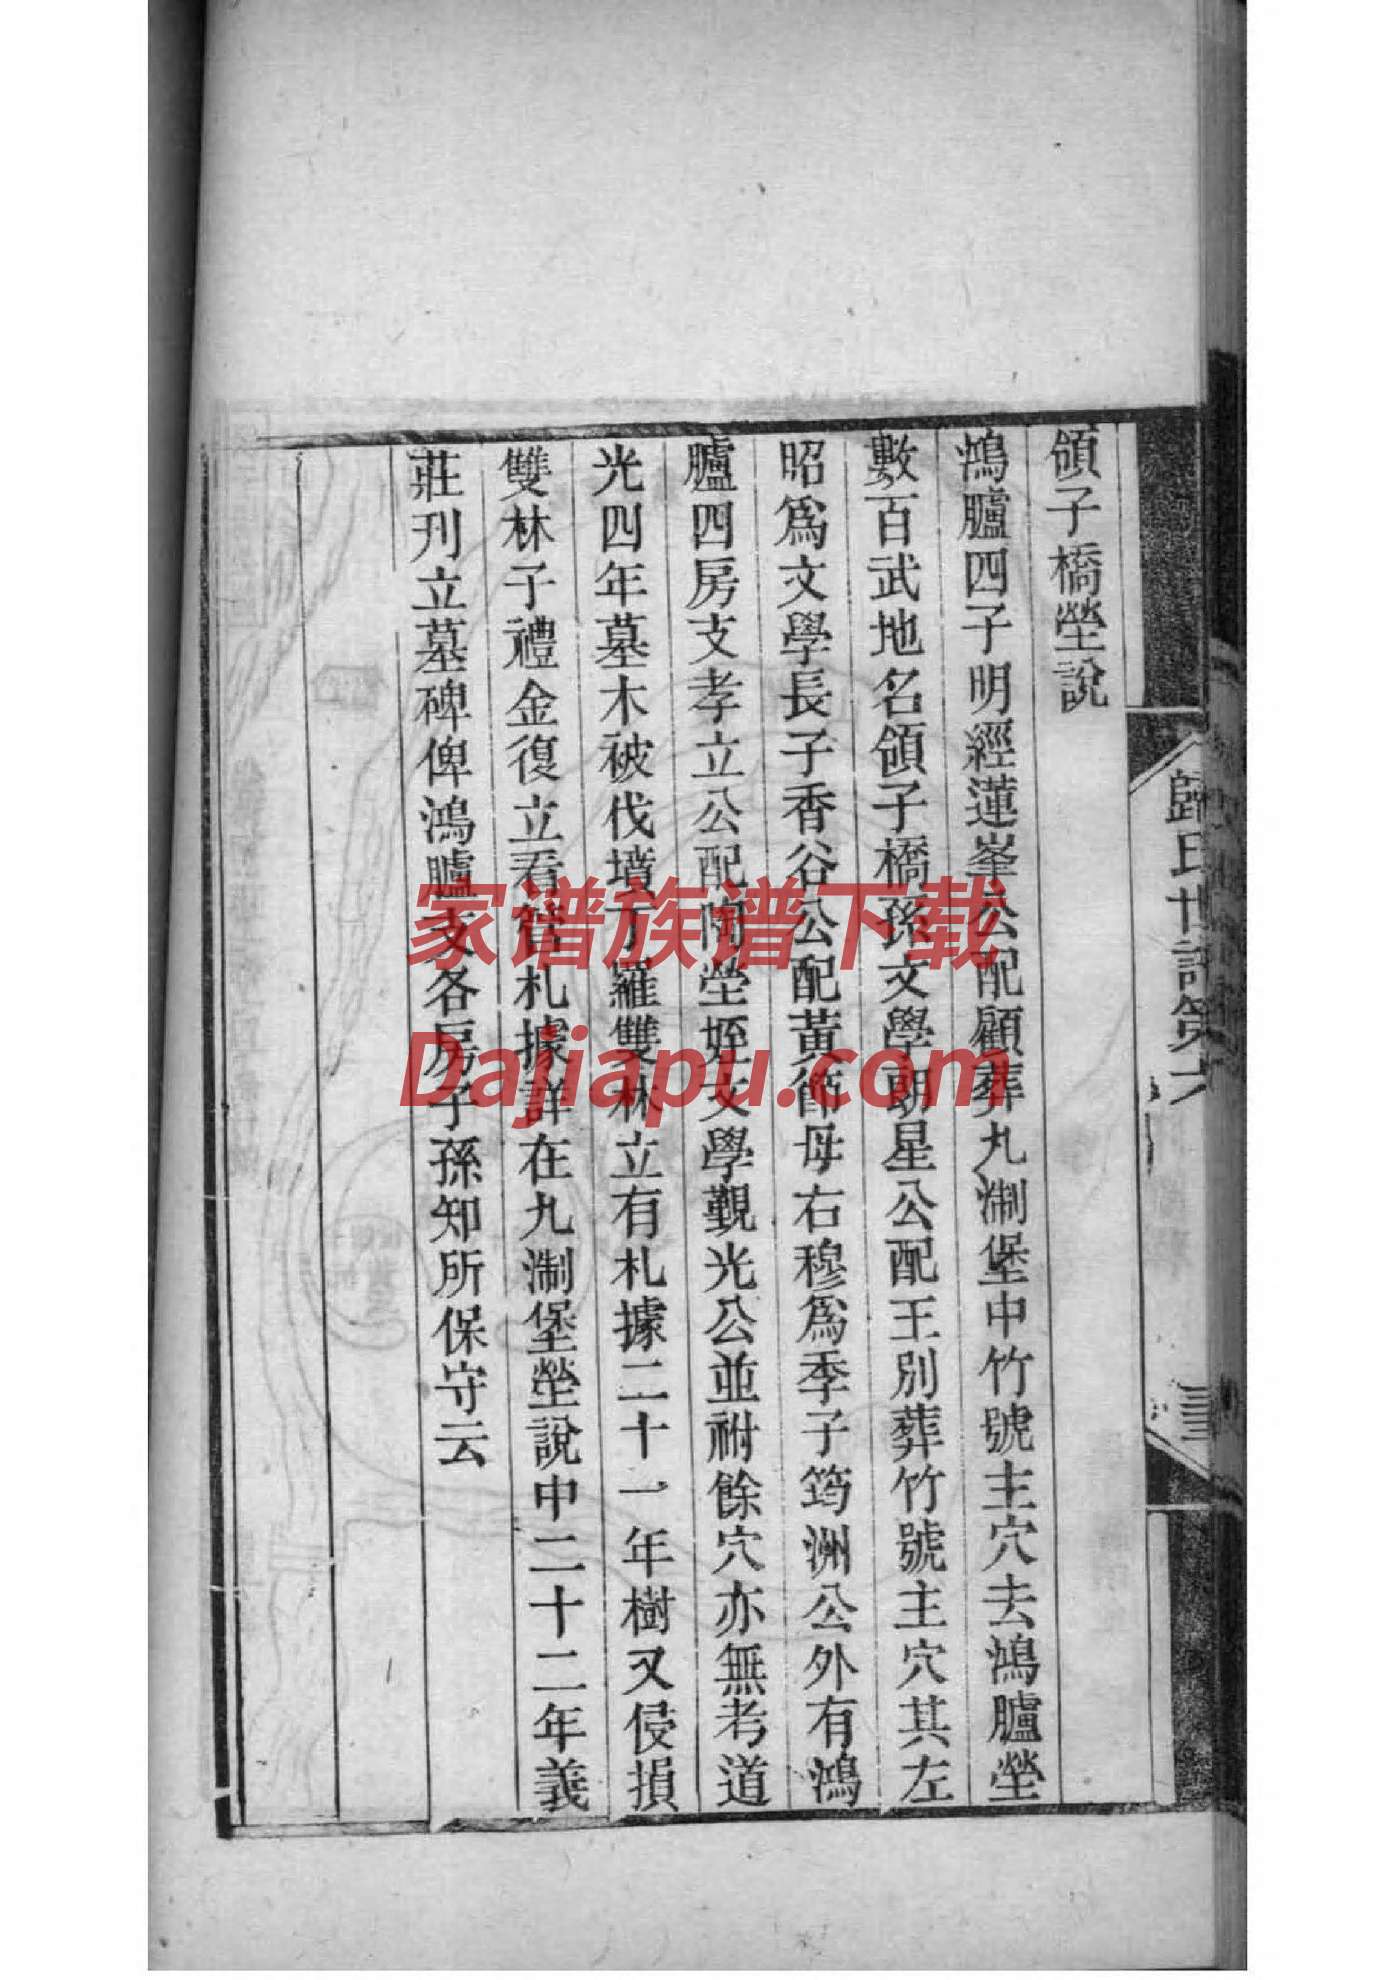 領子橋塋說
鴻臚四子明經蓮峯公配顧葬九淛堡中竹號主穴去鴻臚塋
數百武地名領子橋孫文學朗星公配王別葬竹號主穴其左
昭爲文學長子香谷公配黃節母右穆爲季子筠洲公外有鴻
臚四房支孝立公配陶塋姪文學觀光公並祔餘穴亦無考道
光四年墓木被伐墳丁羅雙林立有札據二十一年樹又侵損
雙林子禮金復立看管札據詳在九淛堡塋說中二十二年義
莊刋立墓碑俾鴻臚支各房子孫知所保守云
歸氏世譜第六
家谱族谱下载
Dajiapu.com